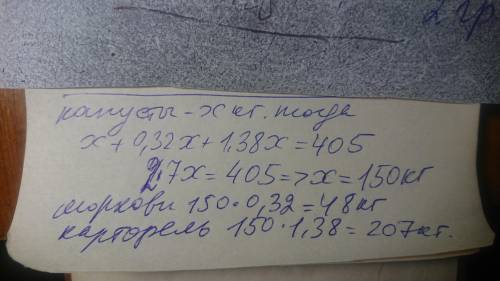 2 гр
капусты - x кг. тогда
x + 0,32x + 1,38x = 405
2,7x = 405 => x = 150 кг
моркови 150 · 0,32 = 48 кг
картофель 150 · 1,38 = 207 кг.